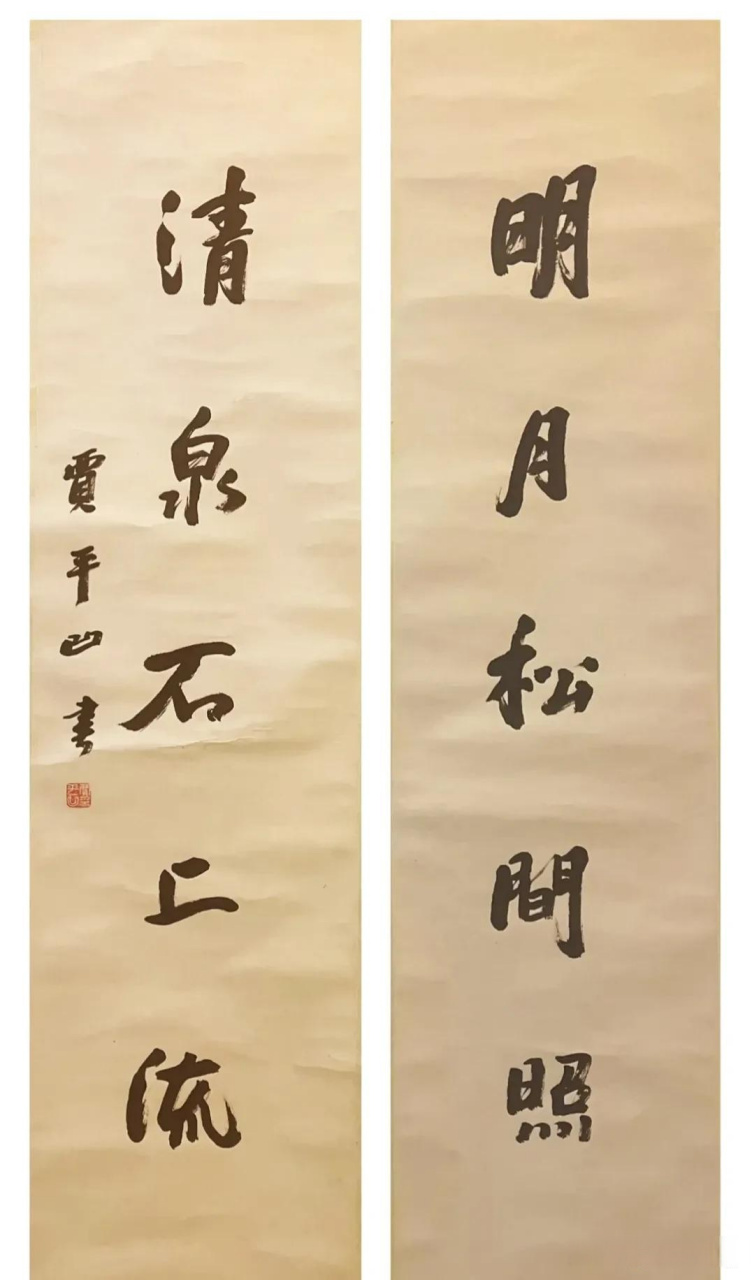 明月松間照
清泉石上流
賈平凹書